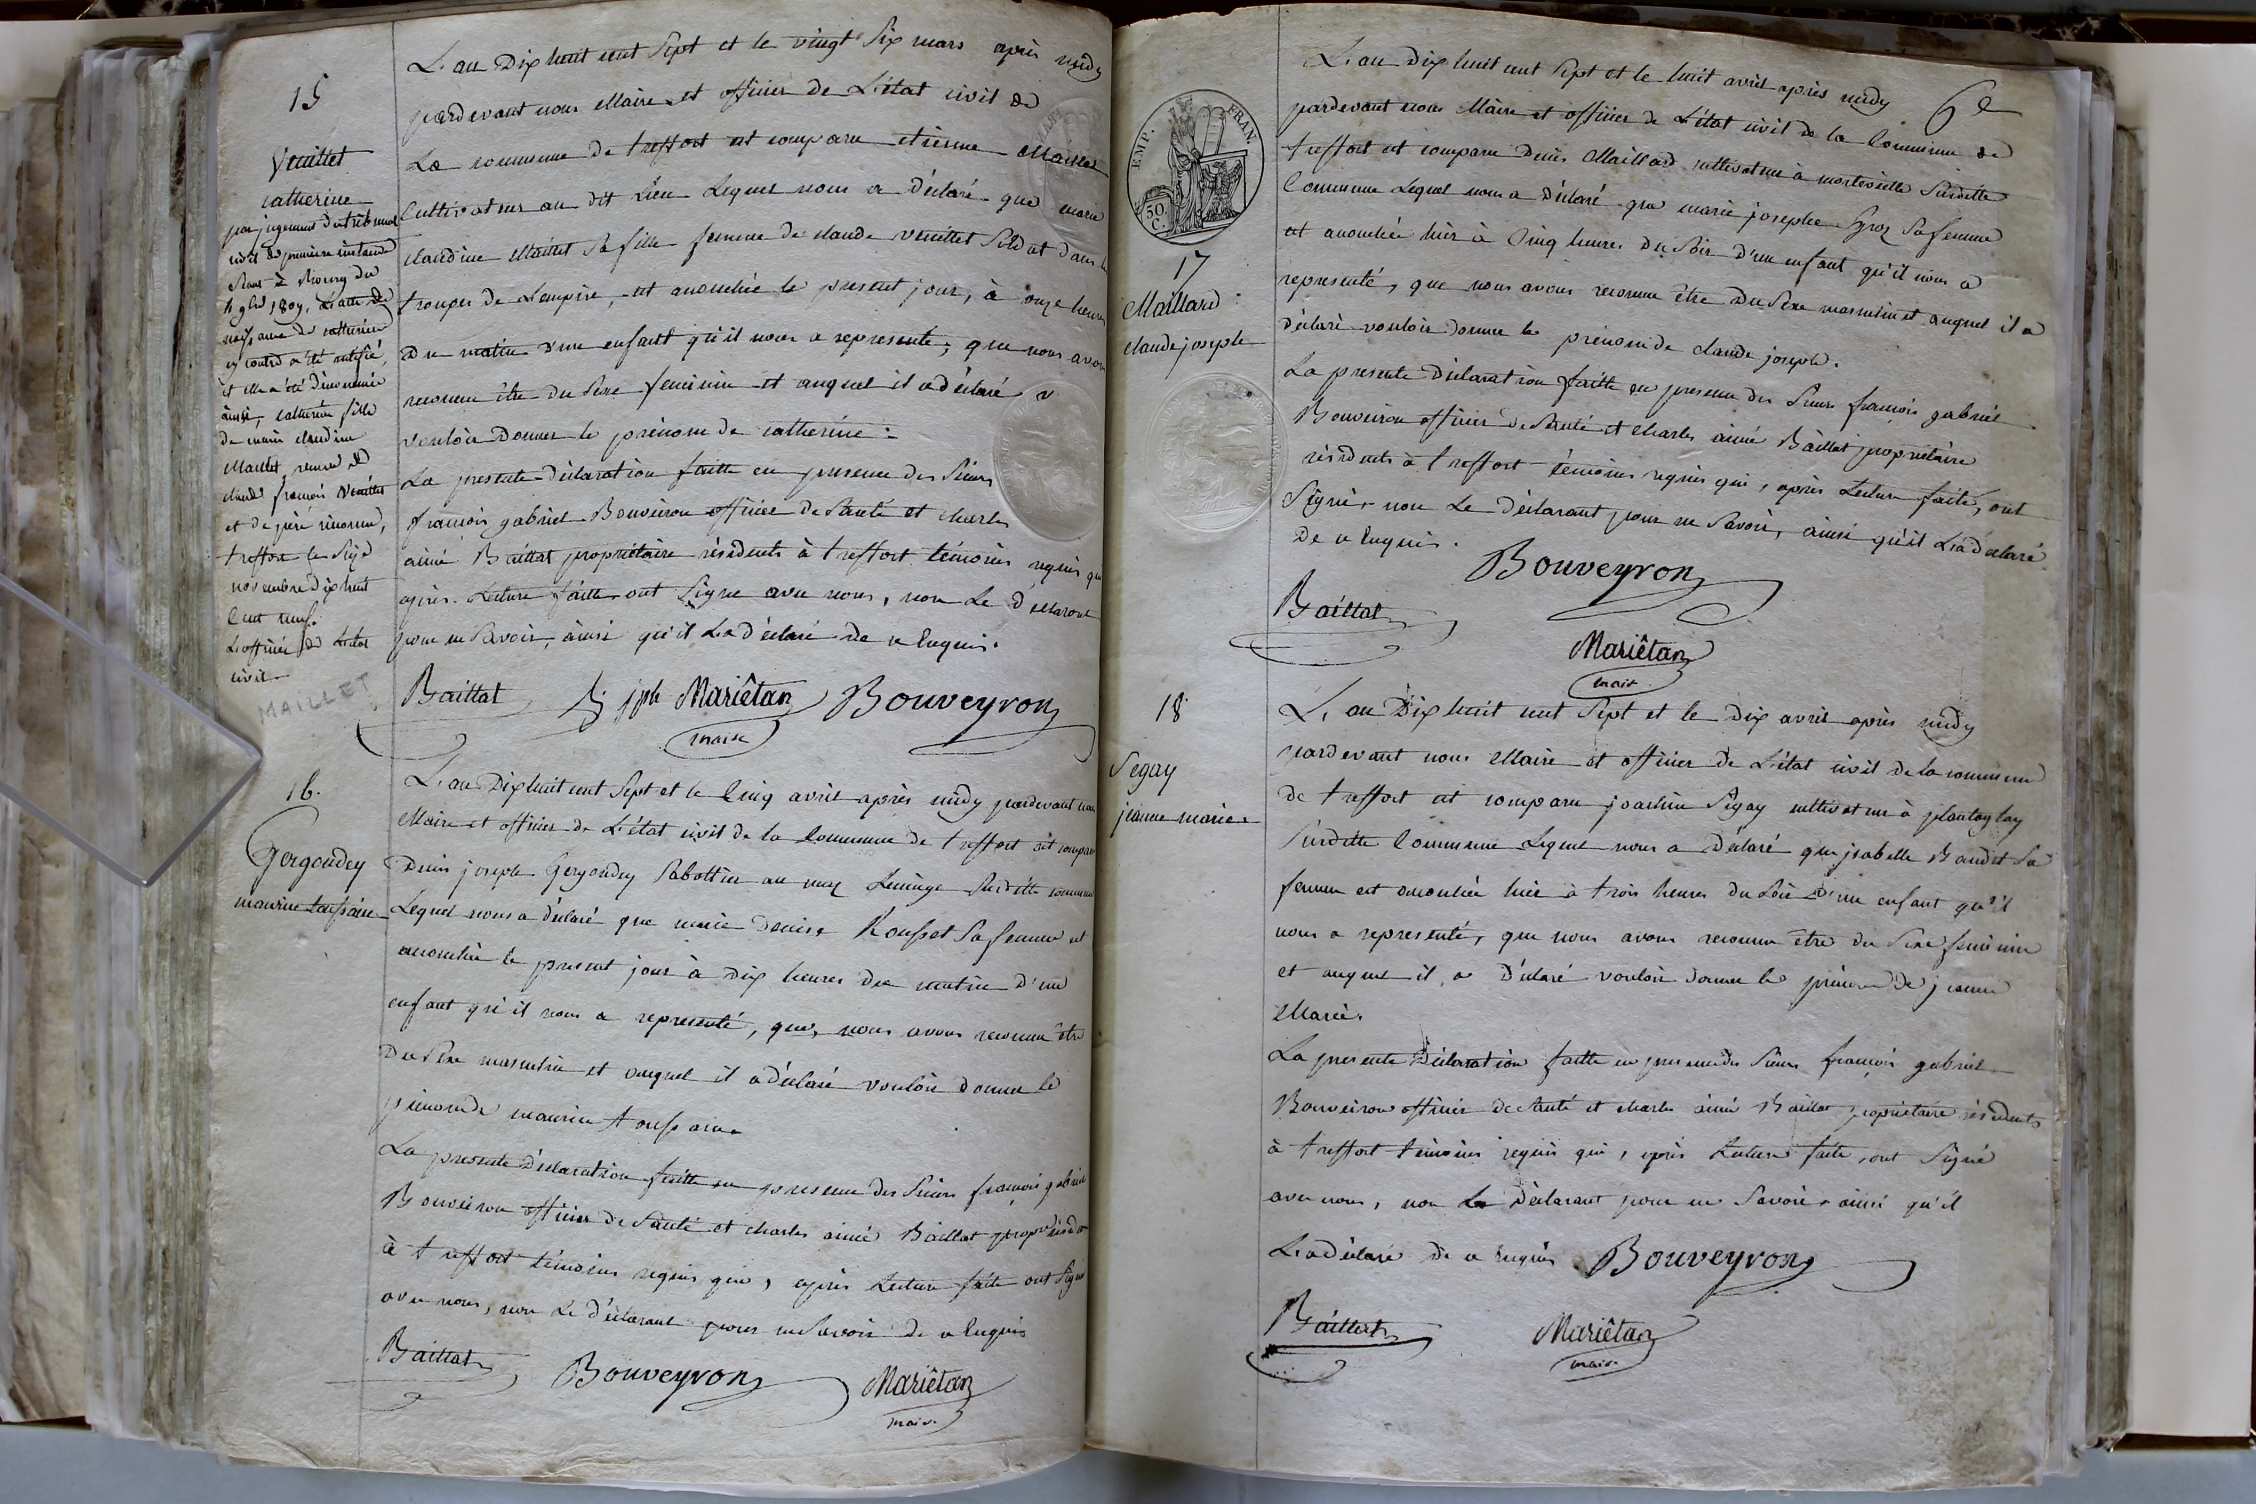 15
Veuillet
catherine
par jugement du tribunal
civil de premiere instance
Séant à Bourg du
1809, L'acte de
naissance de catherine
cy contre a été rectifié,
et elle a été dénommée
ainsi, catherine fille
de marie claudine
Maillet, veuve de
claude françois Veuillet
et de père inconnu,
treffort le Six
novembre dix huit
Cent neuf.
L'officier de L'état
civil
MAILLET
L'an Dix huit cent Sept et le vingt Six mars après midy
pardevant nous Maire et officier de L'état civil de
La commune de treffort est comparu etienne Maillet
Cultivateur au dit Lieu Lequel nous a déclaré que marie
claudine Maillet Sa fille femme de claude veuillet Soldat dans les
troupes de L'empire, est accouchée le present jour, à onze heures
du matin d'une enfant qu'il nous a representé, que nous avons
reconnu être du Sexe feminin et auquel il a déclaré
vouloir Donner le prénom de catherine.
La presente déclaration faitte en presence des Sieurs
françois gabriel Bouveiron officier de Santé et charles
aimé Baillat propriétaire résidents à treffort témoins requis qui
après Lecture faitte ont Signé avec nous, non Le déclarant
pour ne Savoir, ainsi qu'il L'a déclaré de ce Enquis.
Baillat jph Mariêtan Bouveyron
maire
16.
Gergondey
maurice toussaine
L'an Dix huit cent Sept et le Cinq avril après midy pardevant nous
Maire et officier de L'état civil de la Commune de treffort est comparu
Denis joseph Gergondey Sabottier au Susditte commune
Lequel nous a déclaré que marie denise Rousset Sa femme est
accouchée le present jour à dix heures du matin d'un
enfant qu'il nous a representé, que, nous avons reconnu être
Du Sexe masculin et auquel il a déclaré vouloir donner le
prénom de maurice toussaine
La presente déclaration faitte en presence des Sieurs françois gabriel
Bouveiron officier de Santé et charles aimé Baillat résidents
à treffort témoins requis qui, après Lecture faitte ont Signé
avec nous, non Le déclarant pour ne Savoir de ce Enquis
Baillat Bouveyron Mariêtan
maire
6e
EMP. FRAN.
50.
C.
17
Maillard
claude joseph
L'an dix huit cent Sept et le huit avril après midy
pardevant nous Maire et officier de L'état civil de la Commune de
treffort est comparu denis Maillard cultivateur à Susditte
Commune Lequel nous a déclaré que marie josephe Sa femme
est accouchée hier à Cinq heures du Soir d'un enfant qu'il nous a
representé, que nous avons reconnu être Du Sexe masculin et auquel il a
déclaré vouloir donner le prénom de claude joseph.
La presente déclaration faitte en presence des Sieurs françois gabriel
Bouveiron officier de Santé et charles aimé Baillat propriétaire
résidents à treffort témoins requis qui, après Lecture faite, ont
Signé, non Le déclarant pour ne Savoir, ainsi qu'il L'a déclaré
de ce Enquis.
Bouveyron
Baillat
Mariêtan
maire
18
Segay
jeanne marie
L'an Dix huit cent Sept et le Dix avril après midy
pardevant nous Maire et officier de L'état civil de la commune
de treffort est comparu joachim Segay cultivateur à plantaglay
Susditte Commune Lequel nous a déclaré que jsabelle Baudet Sa
femme est accouchée hier à trois heures du Soir d'une enfant qu'il
nous a representé, que nous avons reconnu être du Sexe feminin
et auquel il a déclaré vouloir donner le prénom de jeanne
Marie.
La presente Déclaration faitte en presence des Sieurs françois gabriel
Bouveiron officier de Santé et charles aimé Baillat propriétaire résidents
à treffort témoins requis qui, après Lecture faite, ont Signé
avec nous, non Le déclarant pour ne Savoir, ainsi qu'il
L'a déclaré de ce Enquis Bouveyron
Baillat Mariêtan
maire